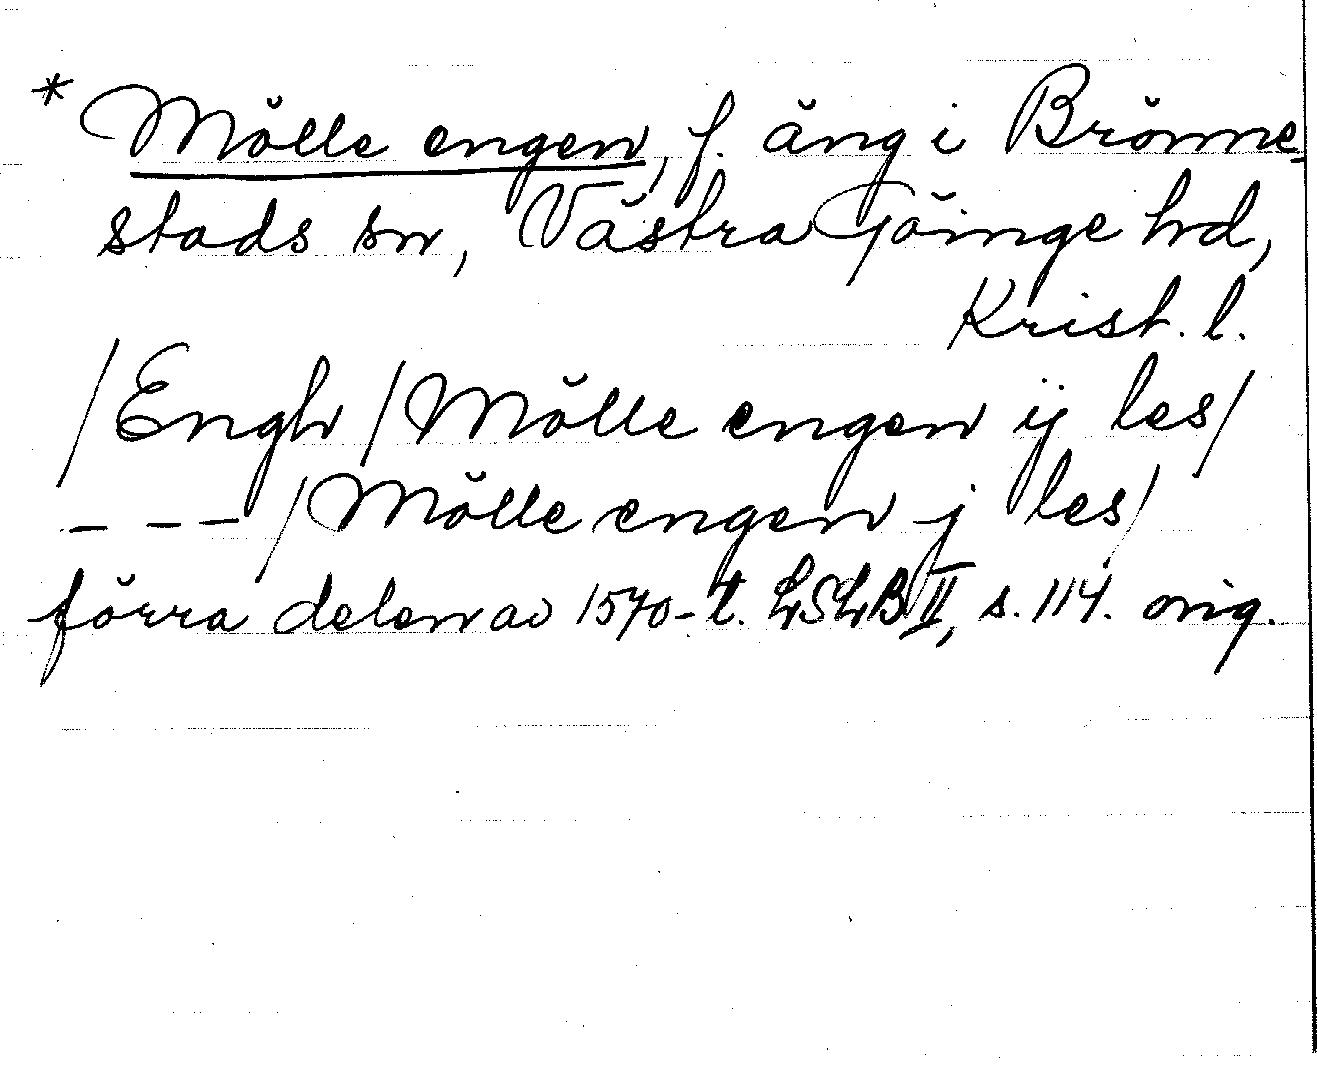 * Mölle engen, f. äng i Brönne-
stads sn, Västra Göinge hd,
Krist. l.
/Engh/Mölle engen ij les/
– – –/Mölle engen j les/
förra delen av 1570-t. LSLB II, s. 114. orig.